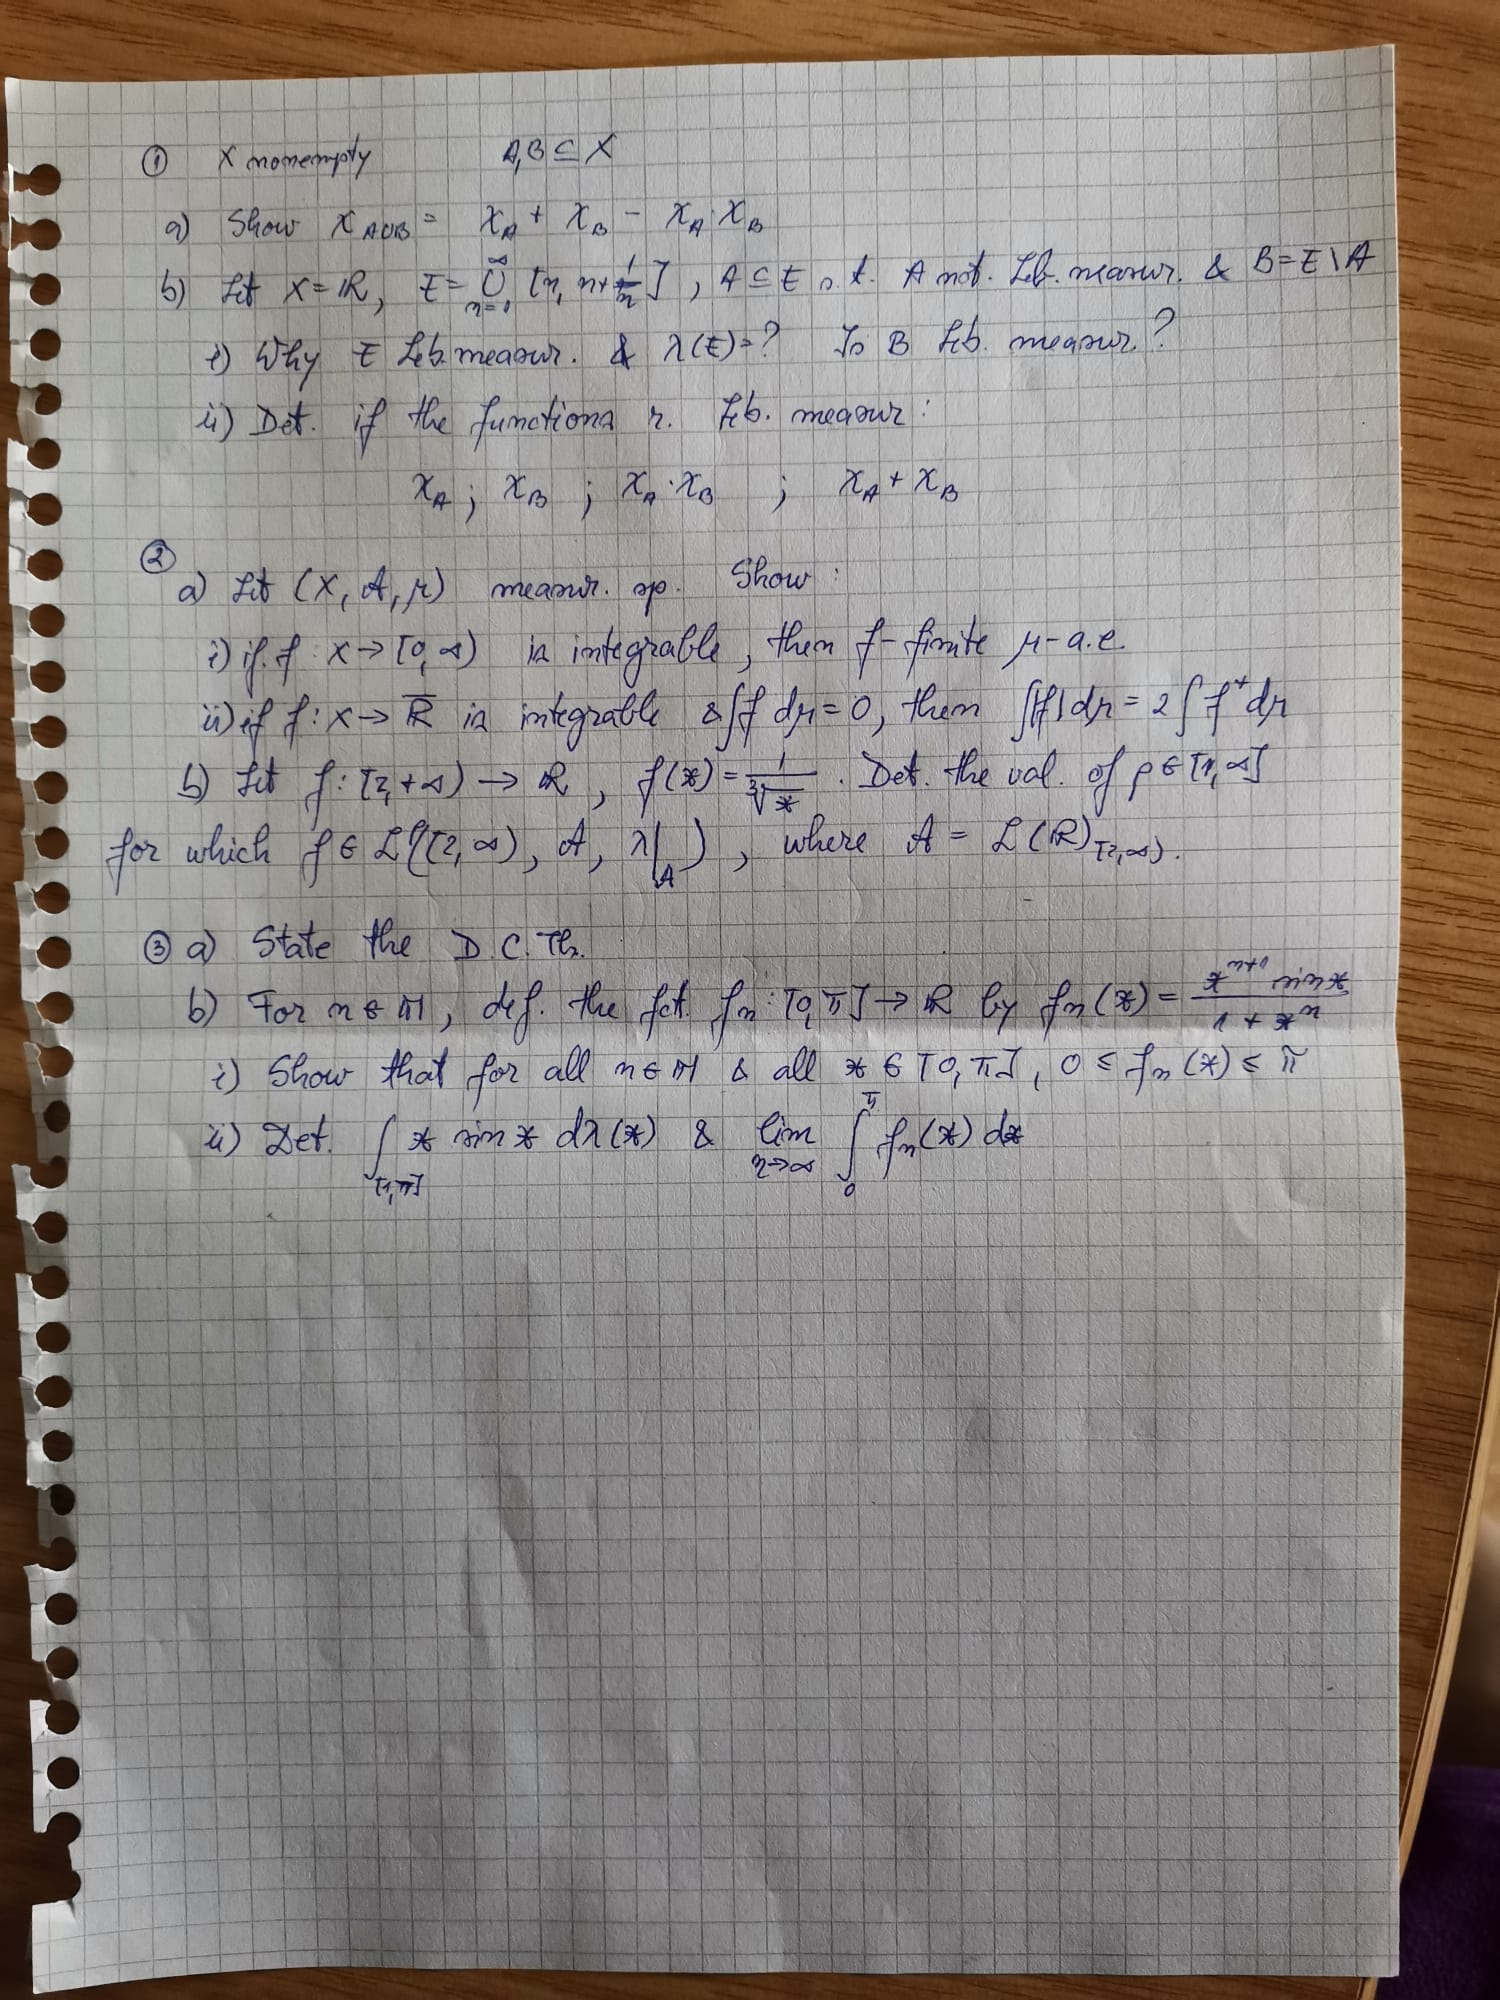 ① X nonempty A,B ⊆ X
a) Show χ_{A∪B} = χ_A + χ_B − χ_A · χ_B
b) Let X = ℝ, E = ⋃_{n=1}^{∞} [n, n+1/n], A ⊆ E s.t. A not. Leb. measur. & B = E \ A
i) Why E Leb. measur. & λ(E) = ? Is B Leb. measur.?
ii) Det. if the functions r. Leb. measur:
χ_A ; χ_B ; χ_A · χ_B ; χ_A + χ_B
②
a) Let (X, A, μ) measur. sp. Show:
i) if f : X → [0, ∞) is integrable, then f - finite μ-a.e.
ii) if f : X → ℝ̅ is integrable & ∫f dμ = 0, then ∫|f| dμ = 2 ∫ f⁺ dμ
b) Let f : [2, +∞) → ℝ, f(x) = 1/∛x. Det. the val. of p ∈ [1, ∞]
for which f ∈ L^p([2, ∞), A, λ|_A), where A = L(ℝ)_{[2,∞)}.
③ a) State the D.C.Th.
b) For n ∈ ℕ, def. the fct. fn : [0, π] → ℝ by fn(x) = (x^{n+1} sin x)/(1 + x^n)
i) Show that for all n ∈ ℕ & all x ∈ [0, π], 0 ≤ fn(x) ≤ π
ii) Det. ∫_{[1,π]} x sin x dλ(x) & lim_{n→∞} ∫_0^π fn(x) dx